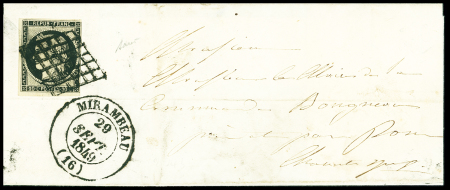 REPUB. FRANC.
MIRAMBEAU
29
SEPT.
1849
(16)
Monsieur
Monsieur le Maire de la
Commune de Bougneau
par Pons